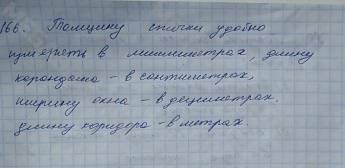 166. Толщину спички удобно
измерять в миллиметрах, длину
карандаша - в сантиметрах,
ширину окна - в дециметрах.
длину коридора - в метрах.